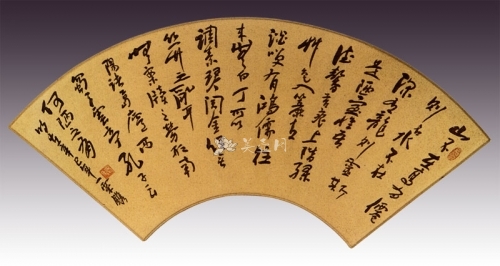 山不在高有僊
则名水不在
深有龍则靈斯
是陋室惟吾
德馨苔痕上階緑
草色入簾青
談笑有鴻儒往
来無白丁可以
調素琴閲金經無
絲竹之亂耳
無案牘之勞形南
陽諸葛廬西
蜀子雲亭孔子云
何陋之有